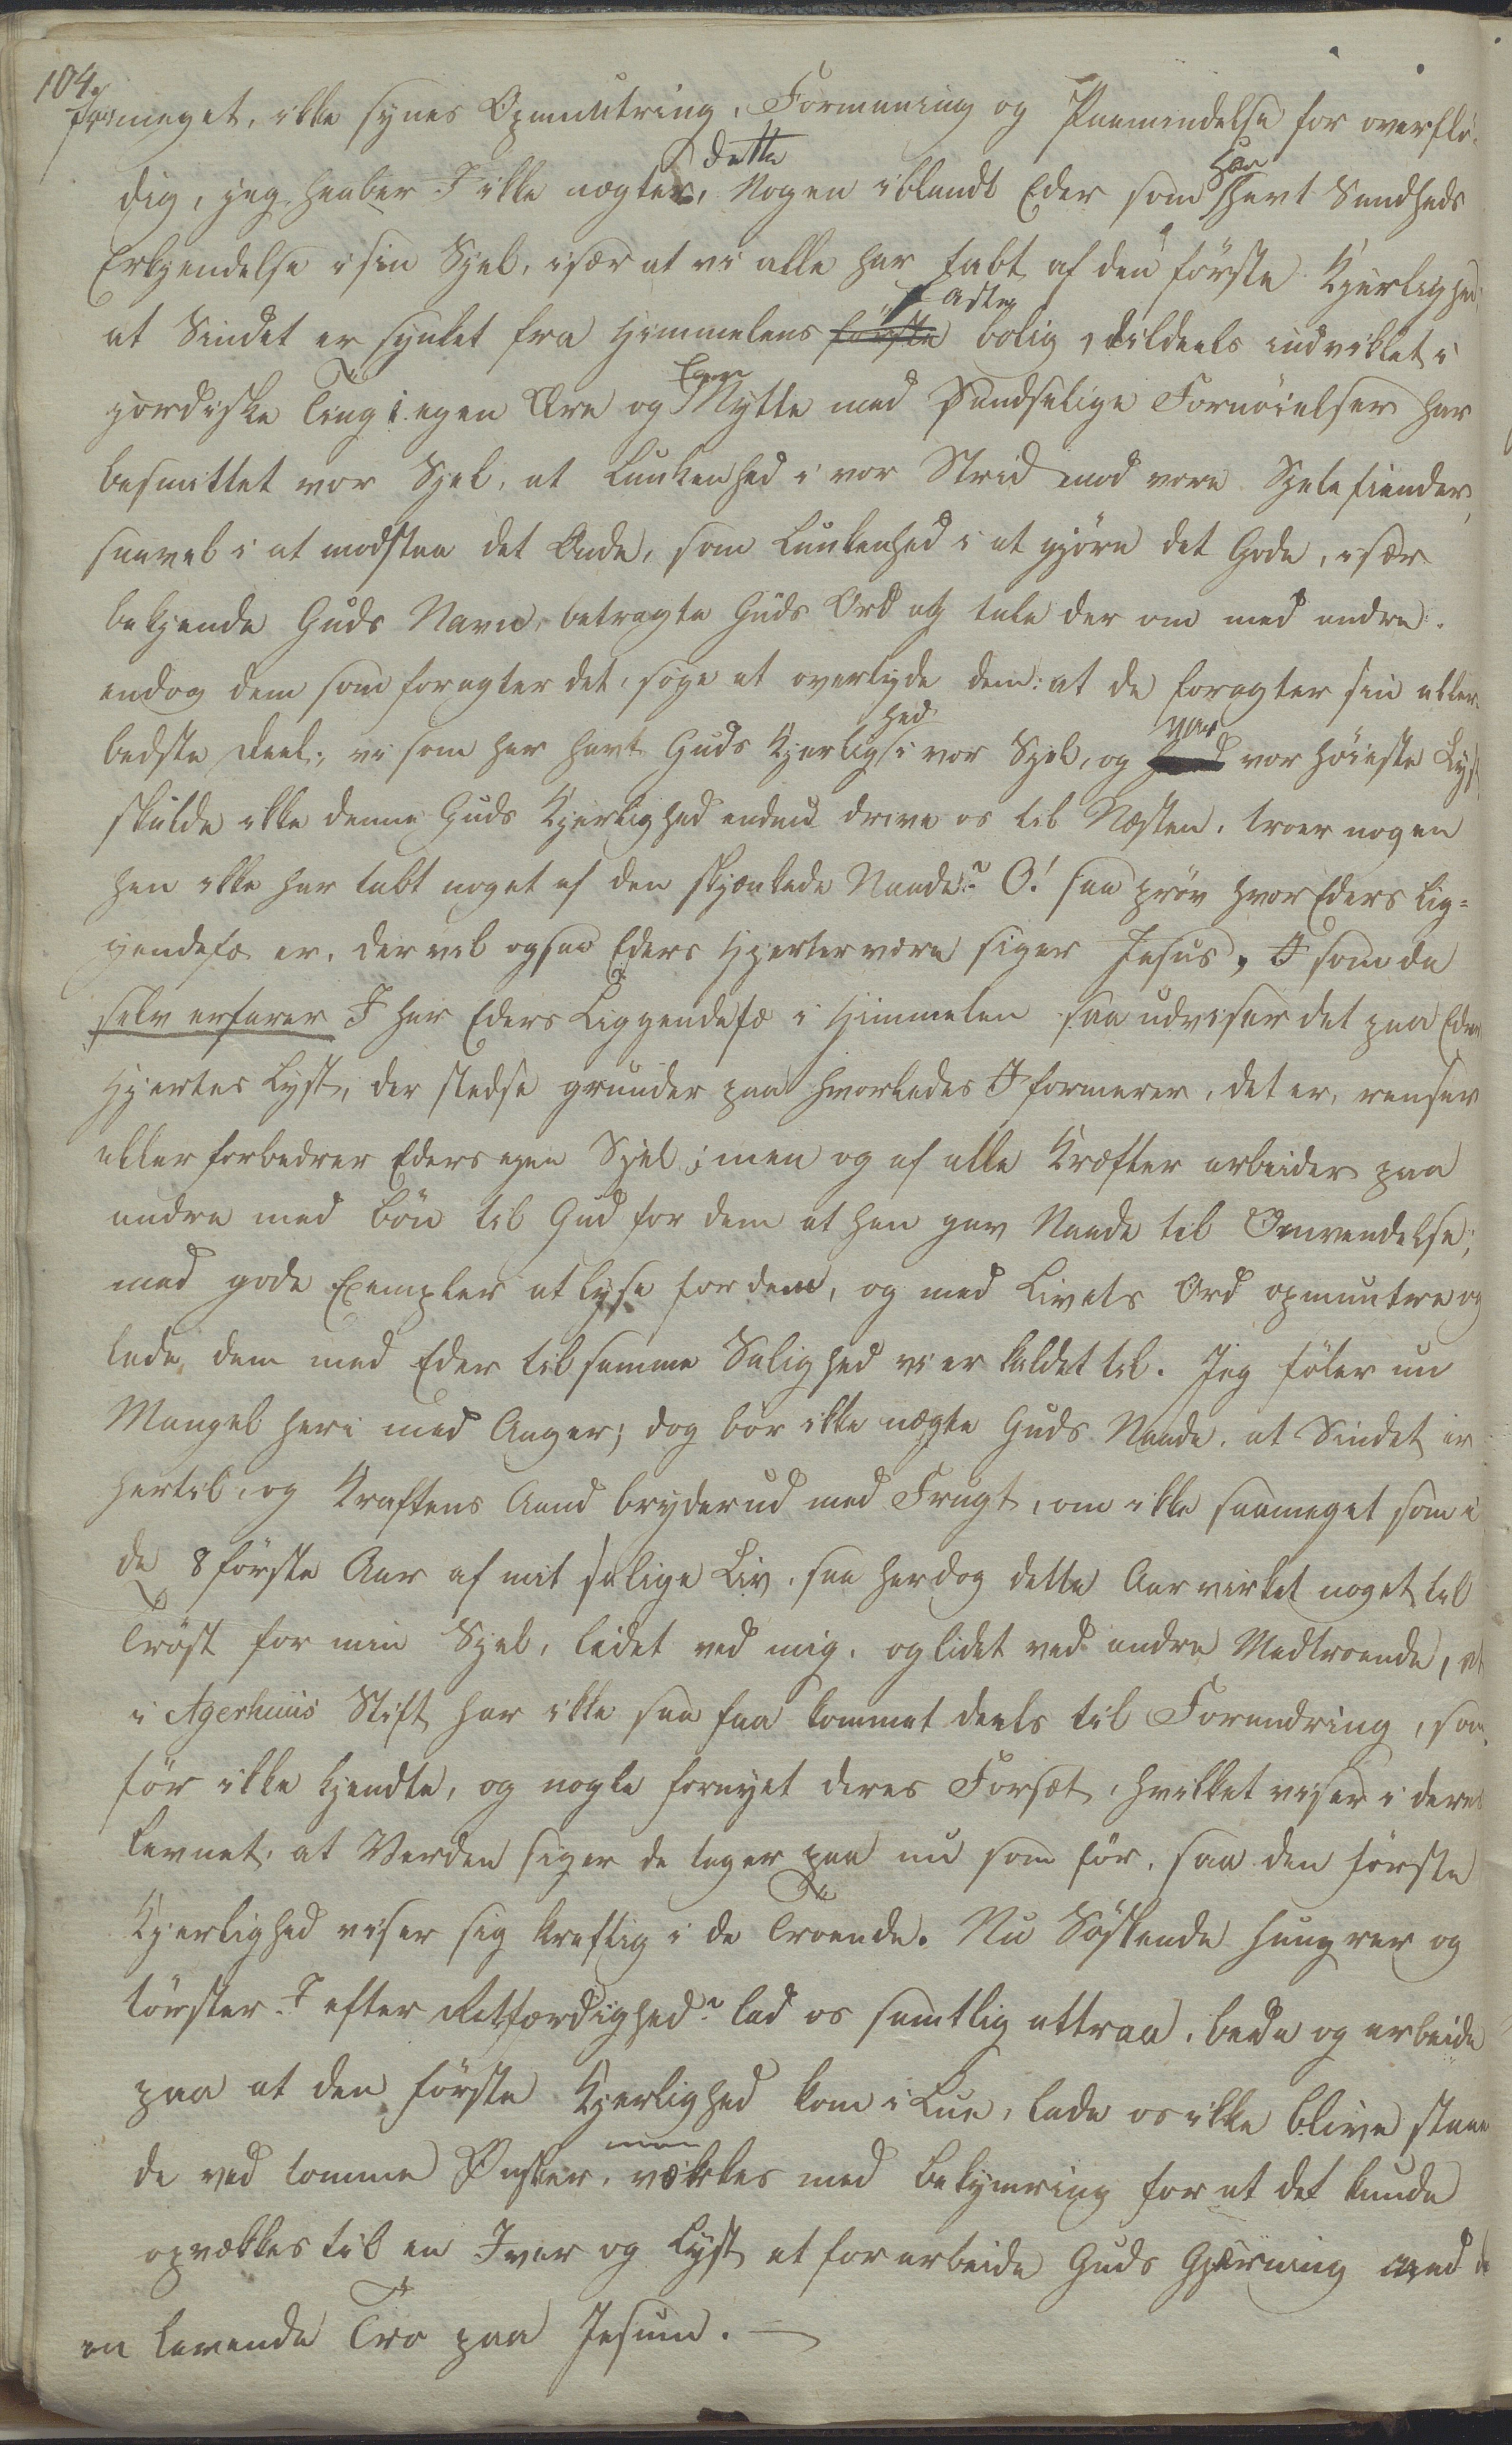 104.
formeget, ikke synes Opmuntring, Formaning og Paamindelse for overflö-
dig, jeg haaber I ikke nægter dette, Nogen iblandt Eder som har havt Sandheds
Erkjendelse i sin Sjel, især at vi alle har tabt af den förste Kjerlighed
at Sindet er sjunket fra Himmelens förste Faste bolig, tildeels indviklet i
jordiske Ting i egen Ære og Egen Nytte med Sandselige Fornöielser har
besmittet vor Sjel, at Lunkenhed i vor Strid mod vore Sjelefiender,
saavel i at modstaa det Onde, som Lunkenhed i at gjöre det Gode, især
bekjende Guds Navn, betragte Guds Ord og tale der om med andre.
endog dem som foragter det, söge at overtyde dem: at de foragter sin aller-
bedste Deel; vi som har havt Guds Kjerlighed i vor Sjel, og var vor höieste Lyst
skulde ikke denne Guds Kjerlighed endnu drive os til Næsten, troer nogen
han ikke har tabt noget af den skjænkede Naade? O! saa pröv hvor Eders Lig-
gendefæ er, der vil ogsaa Eders Hjerter være siger Jesus, I som da
selv erfarer I har Eders Liggendefæ i Himmelen saa udviser det paa Eders
Hjertes Lyst, der stedse grunder paa hvorledes I formerer, det er, renser
eller forbedrer Eders egen Sjel; men og af alle Kræfter arbeider paa
andre med Bön til Gud for dem at han gav Naade til Omvendelse;
med gode Exempler at lyse for dem, og med Livets Ord opmuntre og
lede dem med Eder til samme Salighed vi er kaldet til. Jeg föler nu
Mangel heri med Anger; dog bör ikke nægte Guds Naade, at Sindet er
hertil, og Kraftens Aand bryder ud med Frugt, om ikke saameget som i
de 8 förste Aar af mit salige Liv, saa har dog dette Aar virket noget til
Tröst for min Sjel, lidet ved mig, og lidet ved andre Medtroende, at
i Agerhuus Stift har ikke saa faa kommet deels til Forandring, som
för ikke kjendte, og nogle fornyet deres Forsæt, hvilket viser i deres
Levnet, at Verden siger de tager paa nu som för, saa den förste
Kjerlighed viser sig kraftig i de Troende. Nu Söskende hungrer og
törster I efter Retfærdighed? lad os samtlig attraa, bede og arbeide
paa at den förste Kjerlighed kom i Lue, lade os ikke blive staaen-
de ved tomme Önsker, men vækkes med Bekymring for at det kunde
opvækkes til en Iver og Lyst at forarbeide Guds Gjerning med
en levende Tro paa Jesum. —